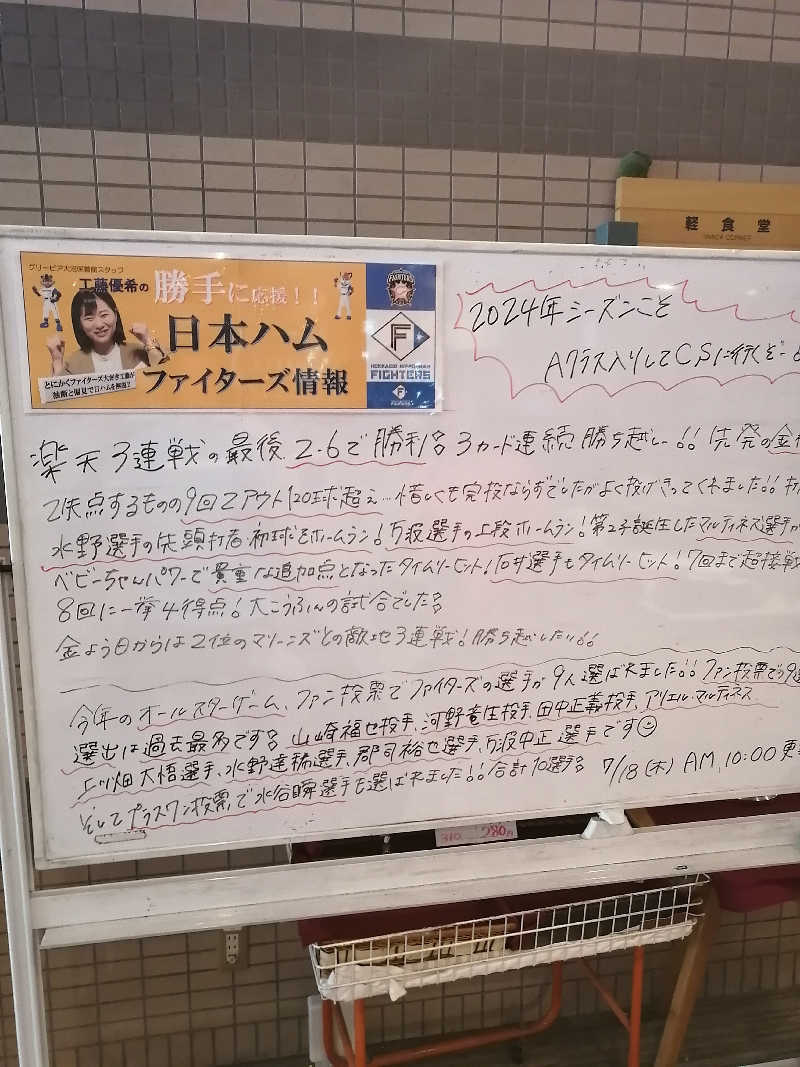 グリーンピア大沼保養館スタッフ
工藤優希の 勝手に応援！！
日本ハム
ファイターズ情報
とにかくファイターズ大好き工藤が
独断と偏見で日ハムを解説？
FIGHTERS
F
HOKKAIDO NIPPON-HAM
FIGHTERS
軽食堂
SNACK CORNER
2024年シーズンこそ
Aクラス入りしてCSに行くぞー
楽天3連戦の最後、2-6で勝利! 3カード連続勝ち越し!! 先発の金
2失点するものの9回2アウト120球超え…惜しくも完投ならずでしたがよく投げきってくれました!!
水野選手の先頭打者初球をホームラン! 万波選手の上段ホームラン! 第2子誕生したマルティネス選手が
ベビーちゃんパワーで貴重な追加点となったタイムリーヒット! 石井選手もタイムリーヒット! 7回まで超接戦
8回に一挙4得点! 大こうふんの試合でした!
金よう日からは2位のマリーンズとの敵地3連戦! 勝ち越したい!!
今年のオールスターゲーム、ファン投票でファイターズの選手が9人選ばれました!! ファン投票での9
選出は過去最多です! 山﨑福也投手、河野竜生投手、田中正義投手、アリエル・マルティネス
上川畑大悟選手、水野達稀選手、郡司裕也選手、万波中正選手です
そしてプラスワン投票で水谷瞬選手も選ばれました!! 合計10選手! 7/18(木) AM 10:00更
310 280円